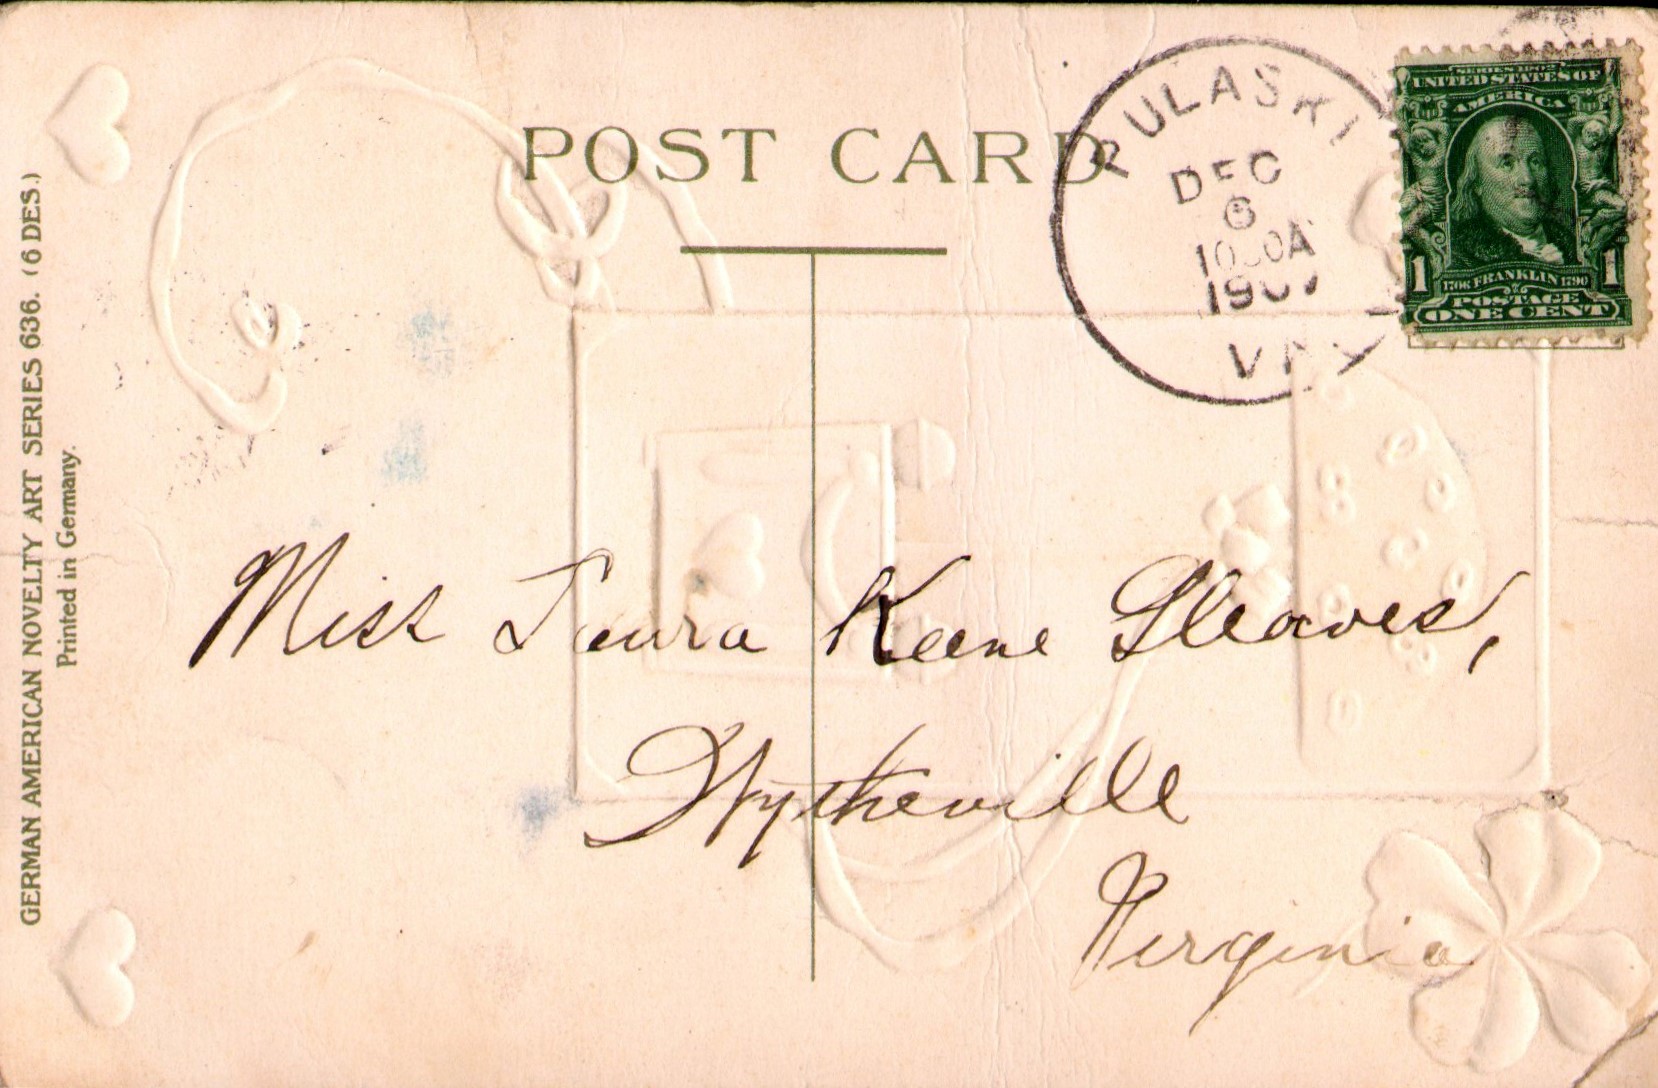 POST CARD
PULASKI
DEC
6
1907
VA.
SERIES 1902
UNITED STATES OF
AMERICA
1706 FRANKLIN 1790
POSTAGE
1 ONE CENT 1
GERMAN AMERICAN NOVELTY ART SERIES 636. (6 DES.)
Printed in Germany.
Miss Laura Keene Gleaves,
Wytheville
Virginia